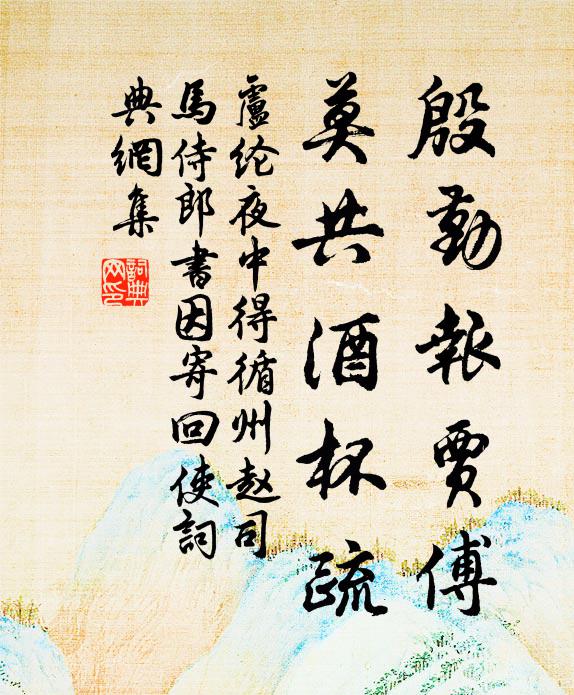 殷勤報賈傅
莫共酒杯疏
盧纶夜中得循州赵司
馬侍郎書因寄回使詞
典網集
詞典
网印